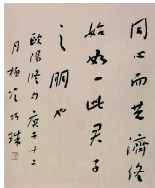 同心而共濟終
始如一此君子
之朋也
歐陽修句庚子十二
月楊珠